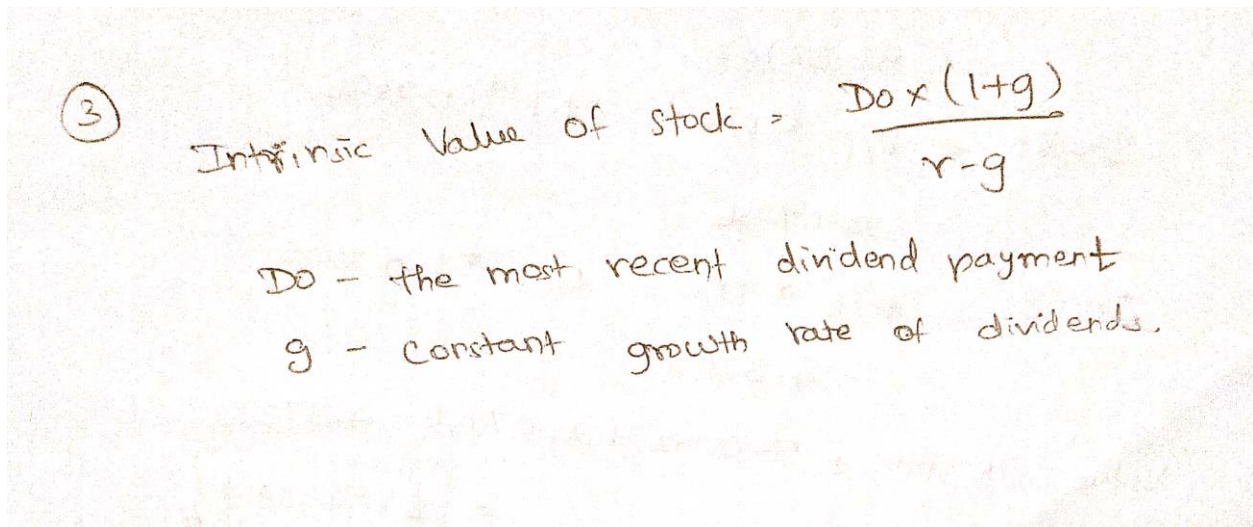 3
Intrinsic Value of stock = Do x (1+g)
r-g
Do - the most recent dividend payment
g - constant growth rate of dividends.